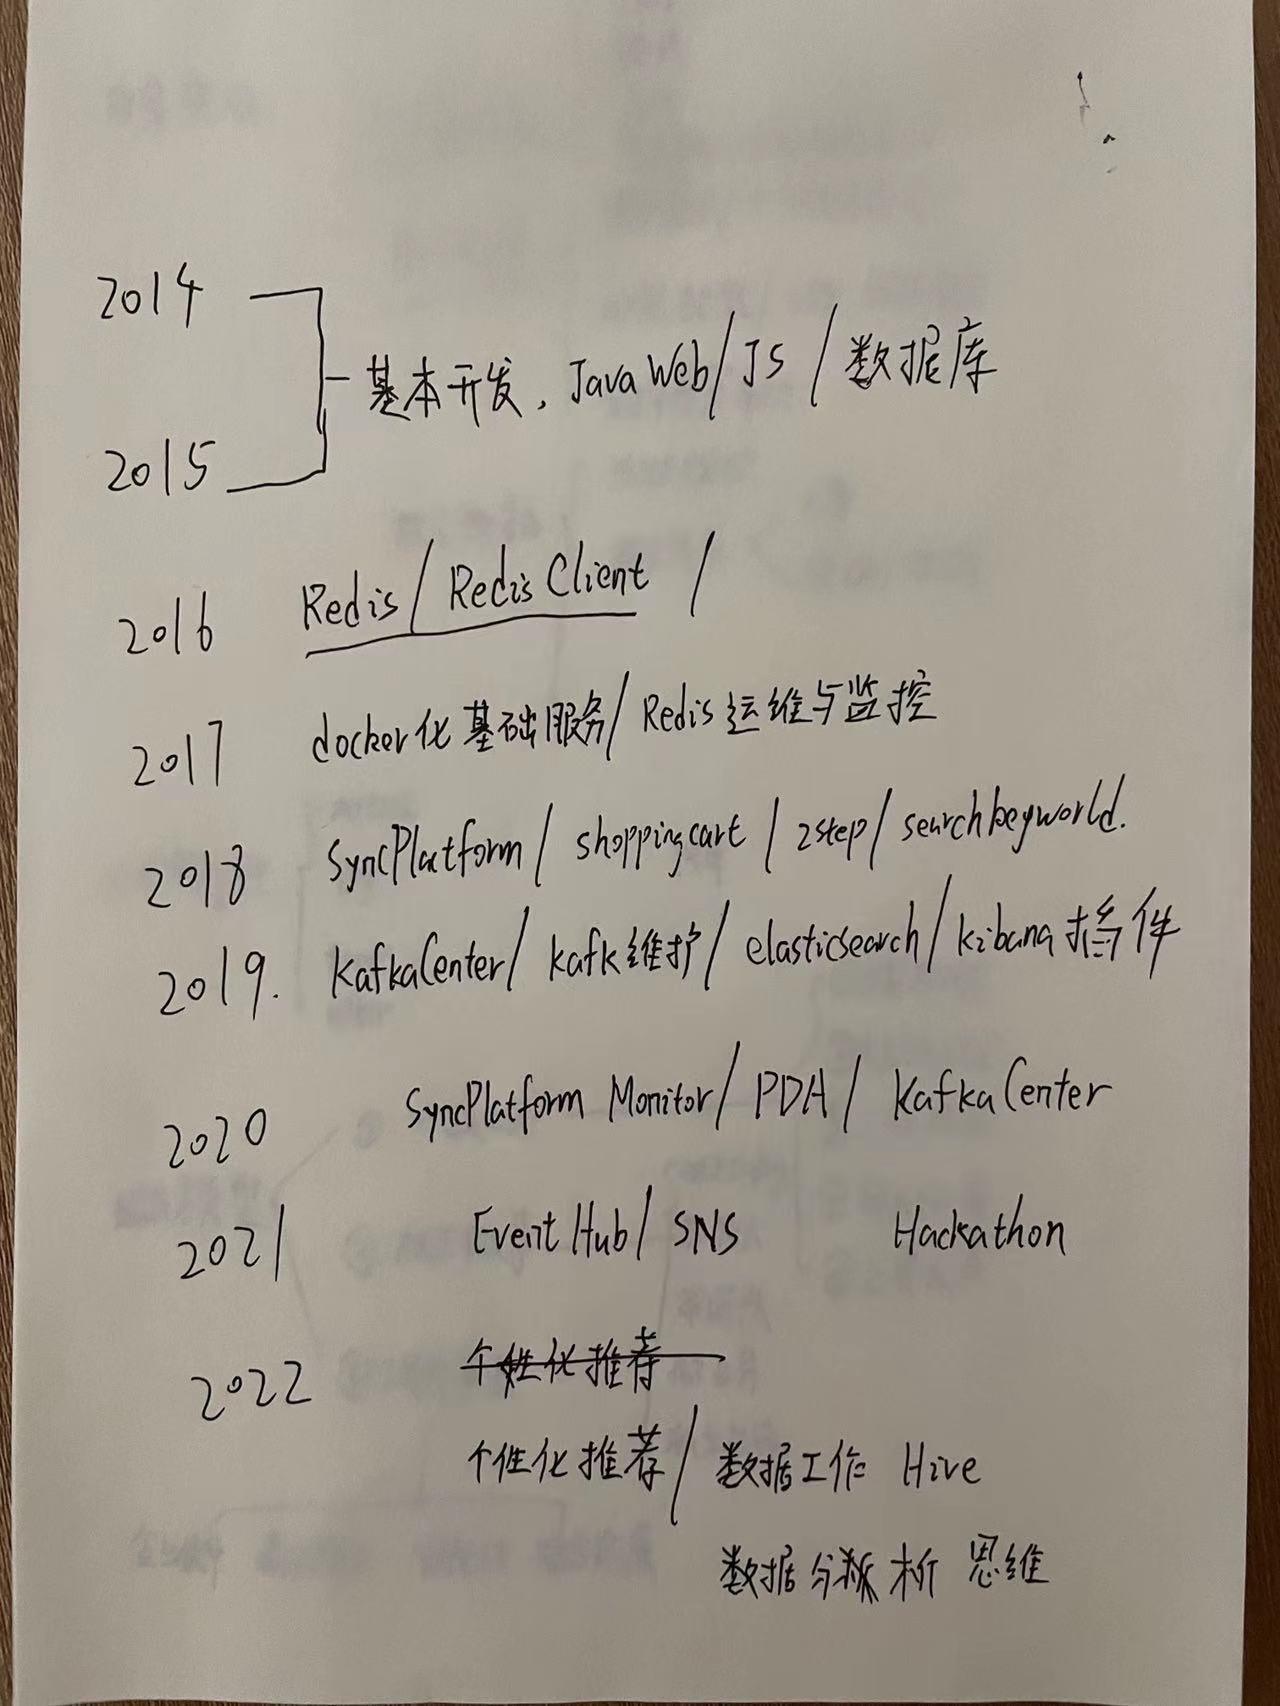 2014
基本开发, Java Web/JS/数据库
2015
2016 Redis/Redis Client /
2017 docker化基础服务/Redis运维与监控
2018 SyncPlatform/shoppingcart/2step/searchkeyworld.
2019. KafkaCenter/kafk维护/elasticsearch/kibana插件
2020 SyncPlatform Monitor/PDA/KafkaCenter
2021 Event Hub/SNS Hackathon
2022 个性化推荐
个性化推荐/数据工作 Hive
数据分析 思维